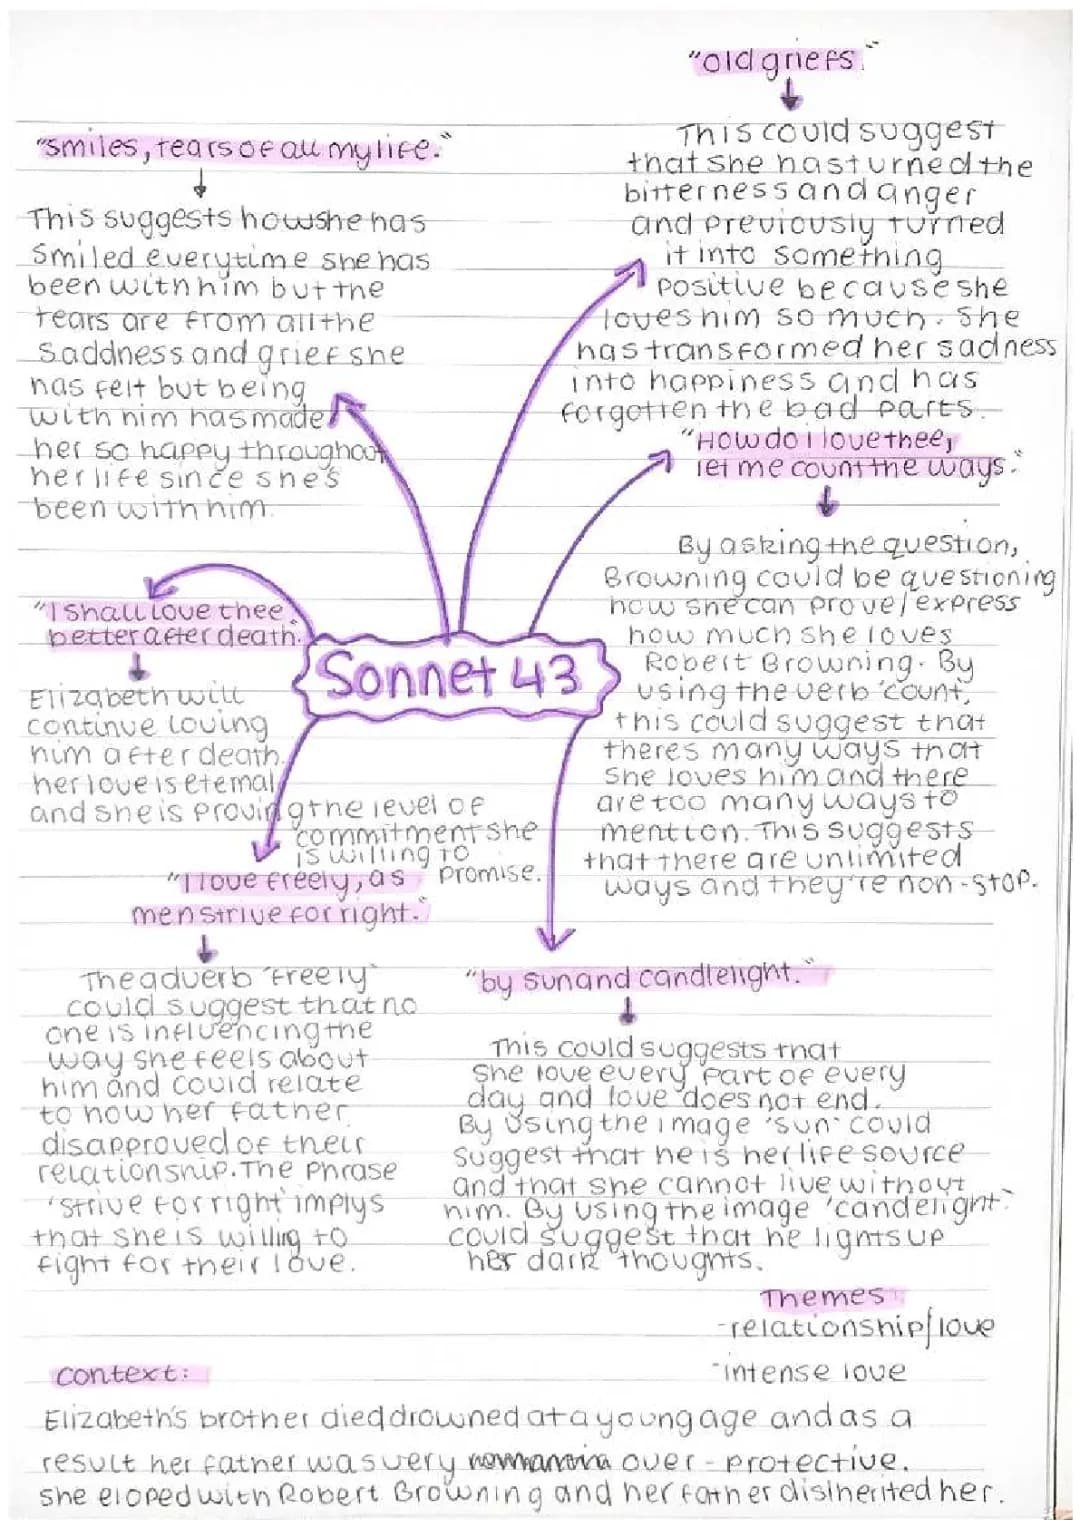 "old griefs."
This could suggest
that she has turned the
bitterness and anger
and previously turned
it into something
positive because she
loves him so much. She
has transformed her sadness
into happiness and has
forgotten the bad parts.
"smiles, tears of all my life."
This suggests how she has
smiled everytime she has
been with him but the
tears are from all the
saddness and grief she
has felt but being
with him has made
her so happy throughout
her life since she's
been with him.
"How do i love thee,
let me count the ways."
By asking the question,
Browning could be questioning
how she can prove/express
how much she loves
Robert Browning. By
using the verb 'count,
this could suggest that
theres many ways that
she loves him and there
are too many ways to
mention. This suggests
that there are unlimited
ways and they're non-stop.
"I shall love thee
better after death.
Elizabeth will
continue loving
him after death.
her love is eternal
and she is proving the level of
commitment she
is willing to
promise.
Sonnet 43
"I love freely, as
men strive for right."
The adverb 'freely'
could suggest that no
one is influencing the
way she feels about
him and could relate
to how her father
disapproved of their
relationship. The phrase
'strive for right' implys
that she is willing to
fight for their love.
"by sun and candlelight."
This could suggests that
she love every part of every
day and love does not end.
By using the image 'sun' could
suggest that he is her life source
and that she cannot live without
him. By using the image 'candelight'
could suggest that he lights up
her dark thoughts.
Themes
-relationship/love
-intense love
context:
Elizabeth's brother died drowned at a young age and as a
result her father was very over-protective.
she eloped with Robert Browning and her father disinherited her.